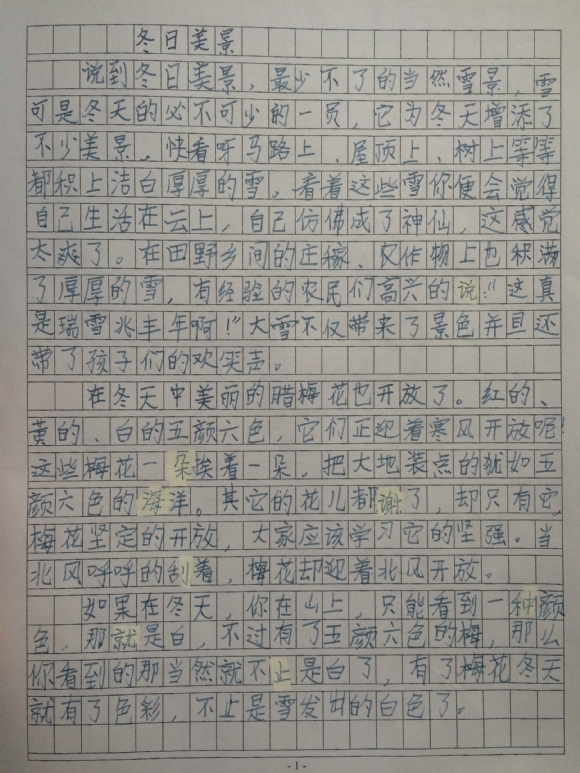 冬日美景
说到冬日美景，最少不了的当然雪景，雪
可是冬天的必不可少的一员，它为冬天增添了
不少美景，快看呀马路上、屋顶上、树上等等
都积上洁白厚厚的雪，看着这些雪你便会觉得
自己生活在云上，自己仿佛成了神仙，这感觉
太爽了。在田野乡间的庄稼、农作物上也积满
了厚厚的雪，有经验的农民们高兴的说："这真
是瑞雪兆丰年啊！"大雪不仅带来了景色并且还
带了孩子们的欢笑声。
在冬天中美丽的腊梅花也开放了。红的、
黄的、白的五颜六色，它们正迎着寒风开放呢！
这些梅花一朵挨着一朵，把大地装点的犹如五
颜六色的海洋。其它的花儿都谢了，却只有它，
梅花坚定的开放，大家应该学习它的坚强。当
北风呼呼的刮着，梅花却迎着北风开放。
如果在冬天，你在山上，只能看到一种颜
色，那就是白，不过有了五颜六色的梅，那么
你看到的那当然就不止是白了，有了梅花冬天
就有了色彩，不止是雪发出的白色了。
- 1 -